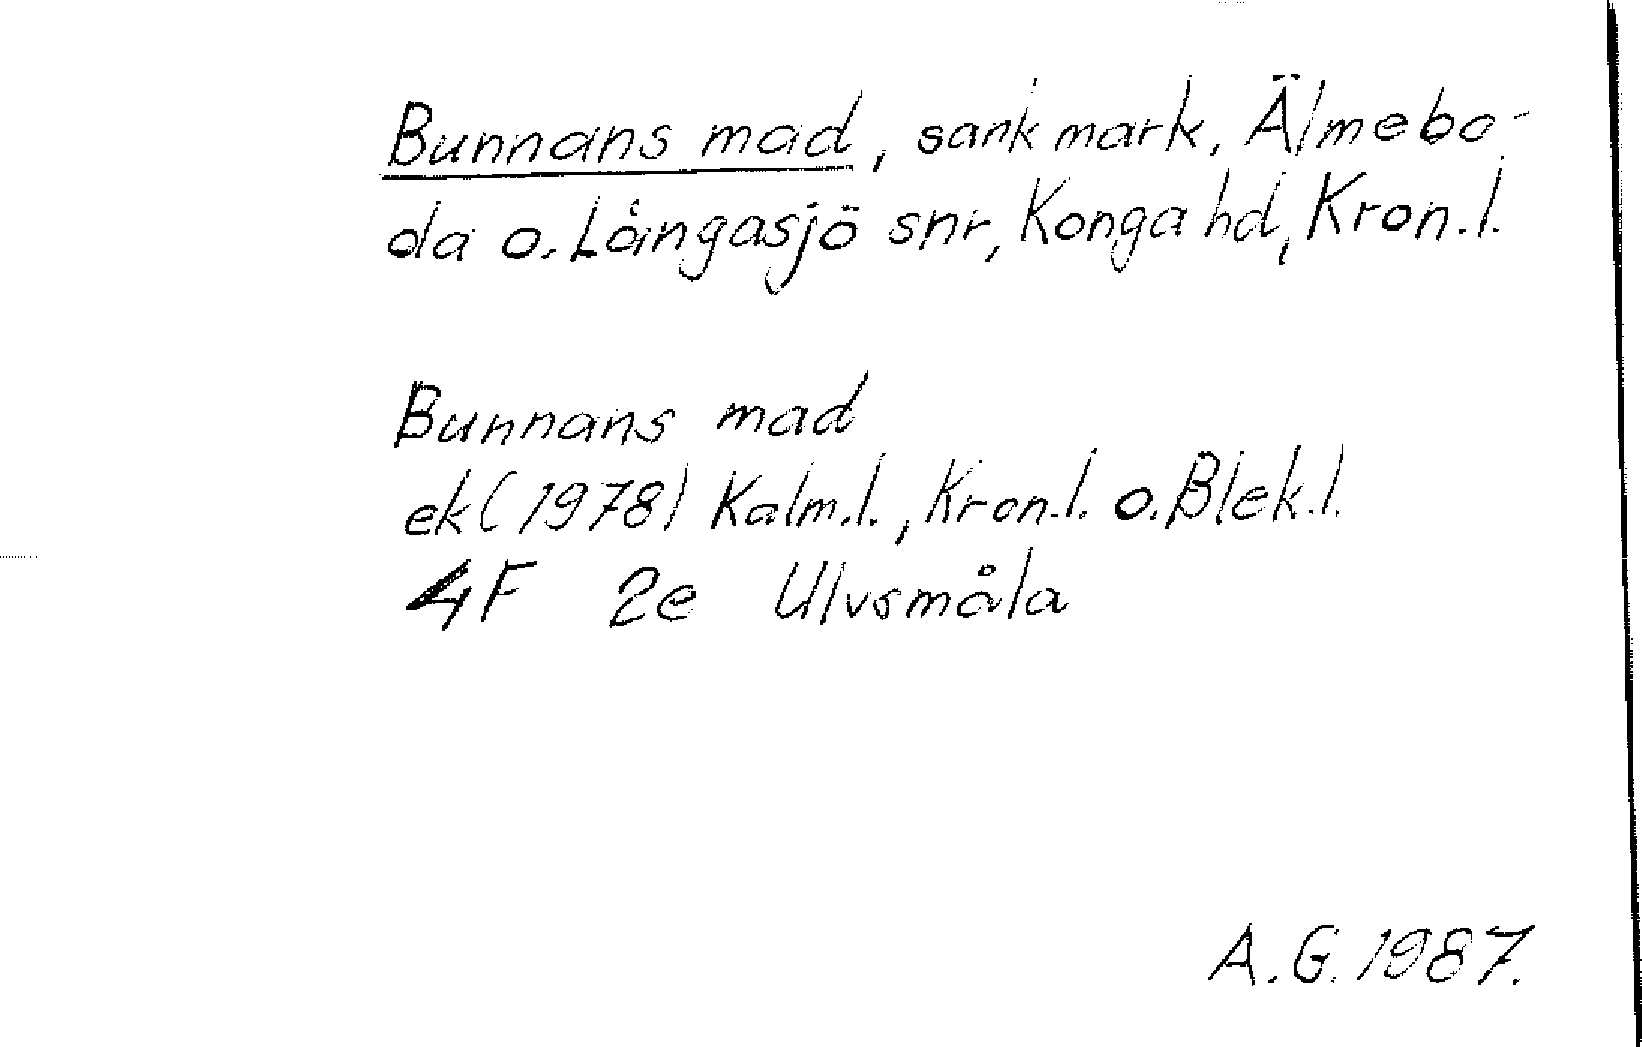 Bunnans mad, sank mark, Älmebo-
da o. Långasjö snr, Konga hd, Kron.l.
Bunnans mad
ek (1978) Kalm.l., Kron.l. o. Blek.l.
4F 2e Ulvsmåla
A.G. 1987.